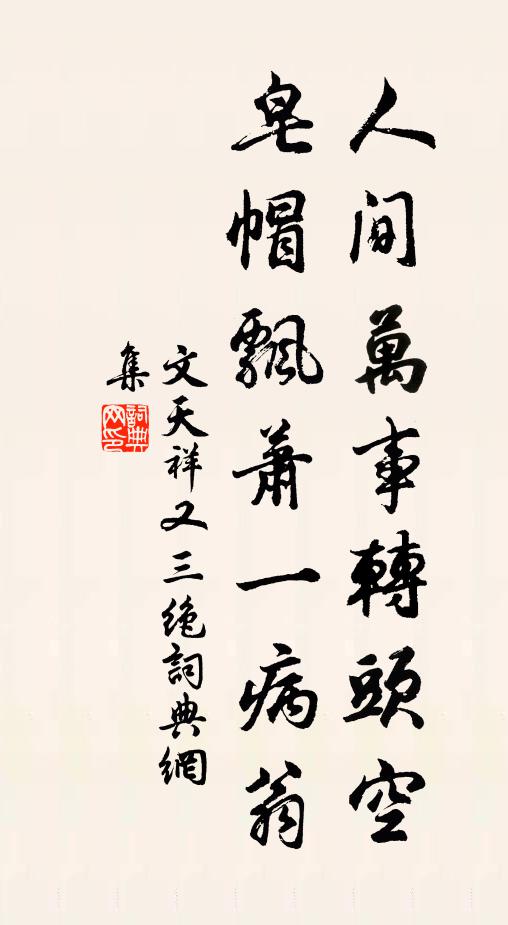 人間萬事轉頭空
皂帽飄蕭一病翁
文天祥又三绝詞典網
集
詞典网印